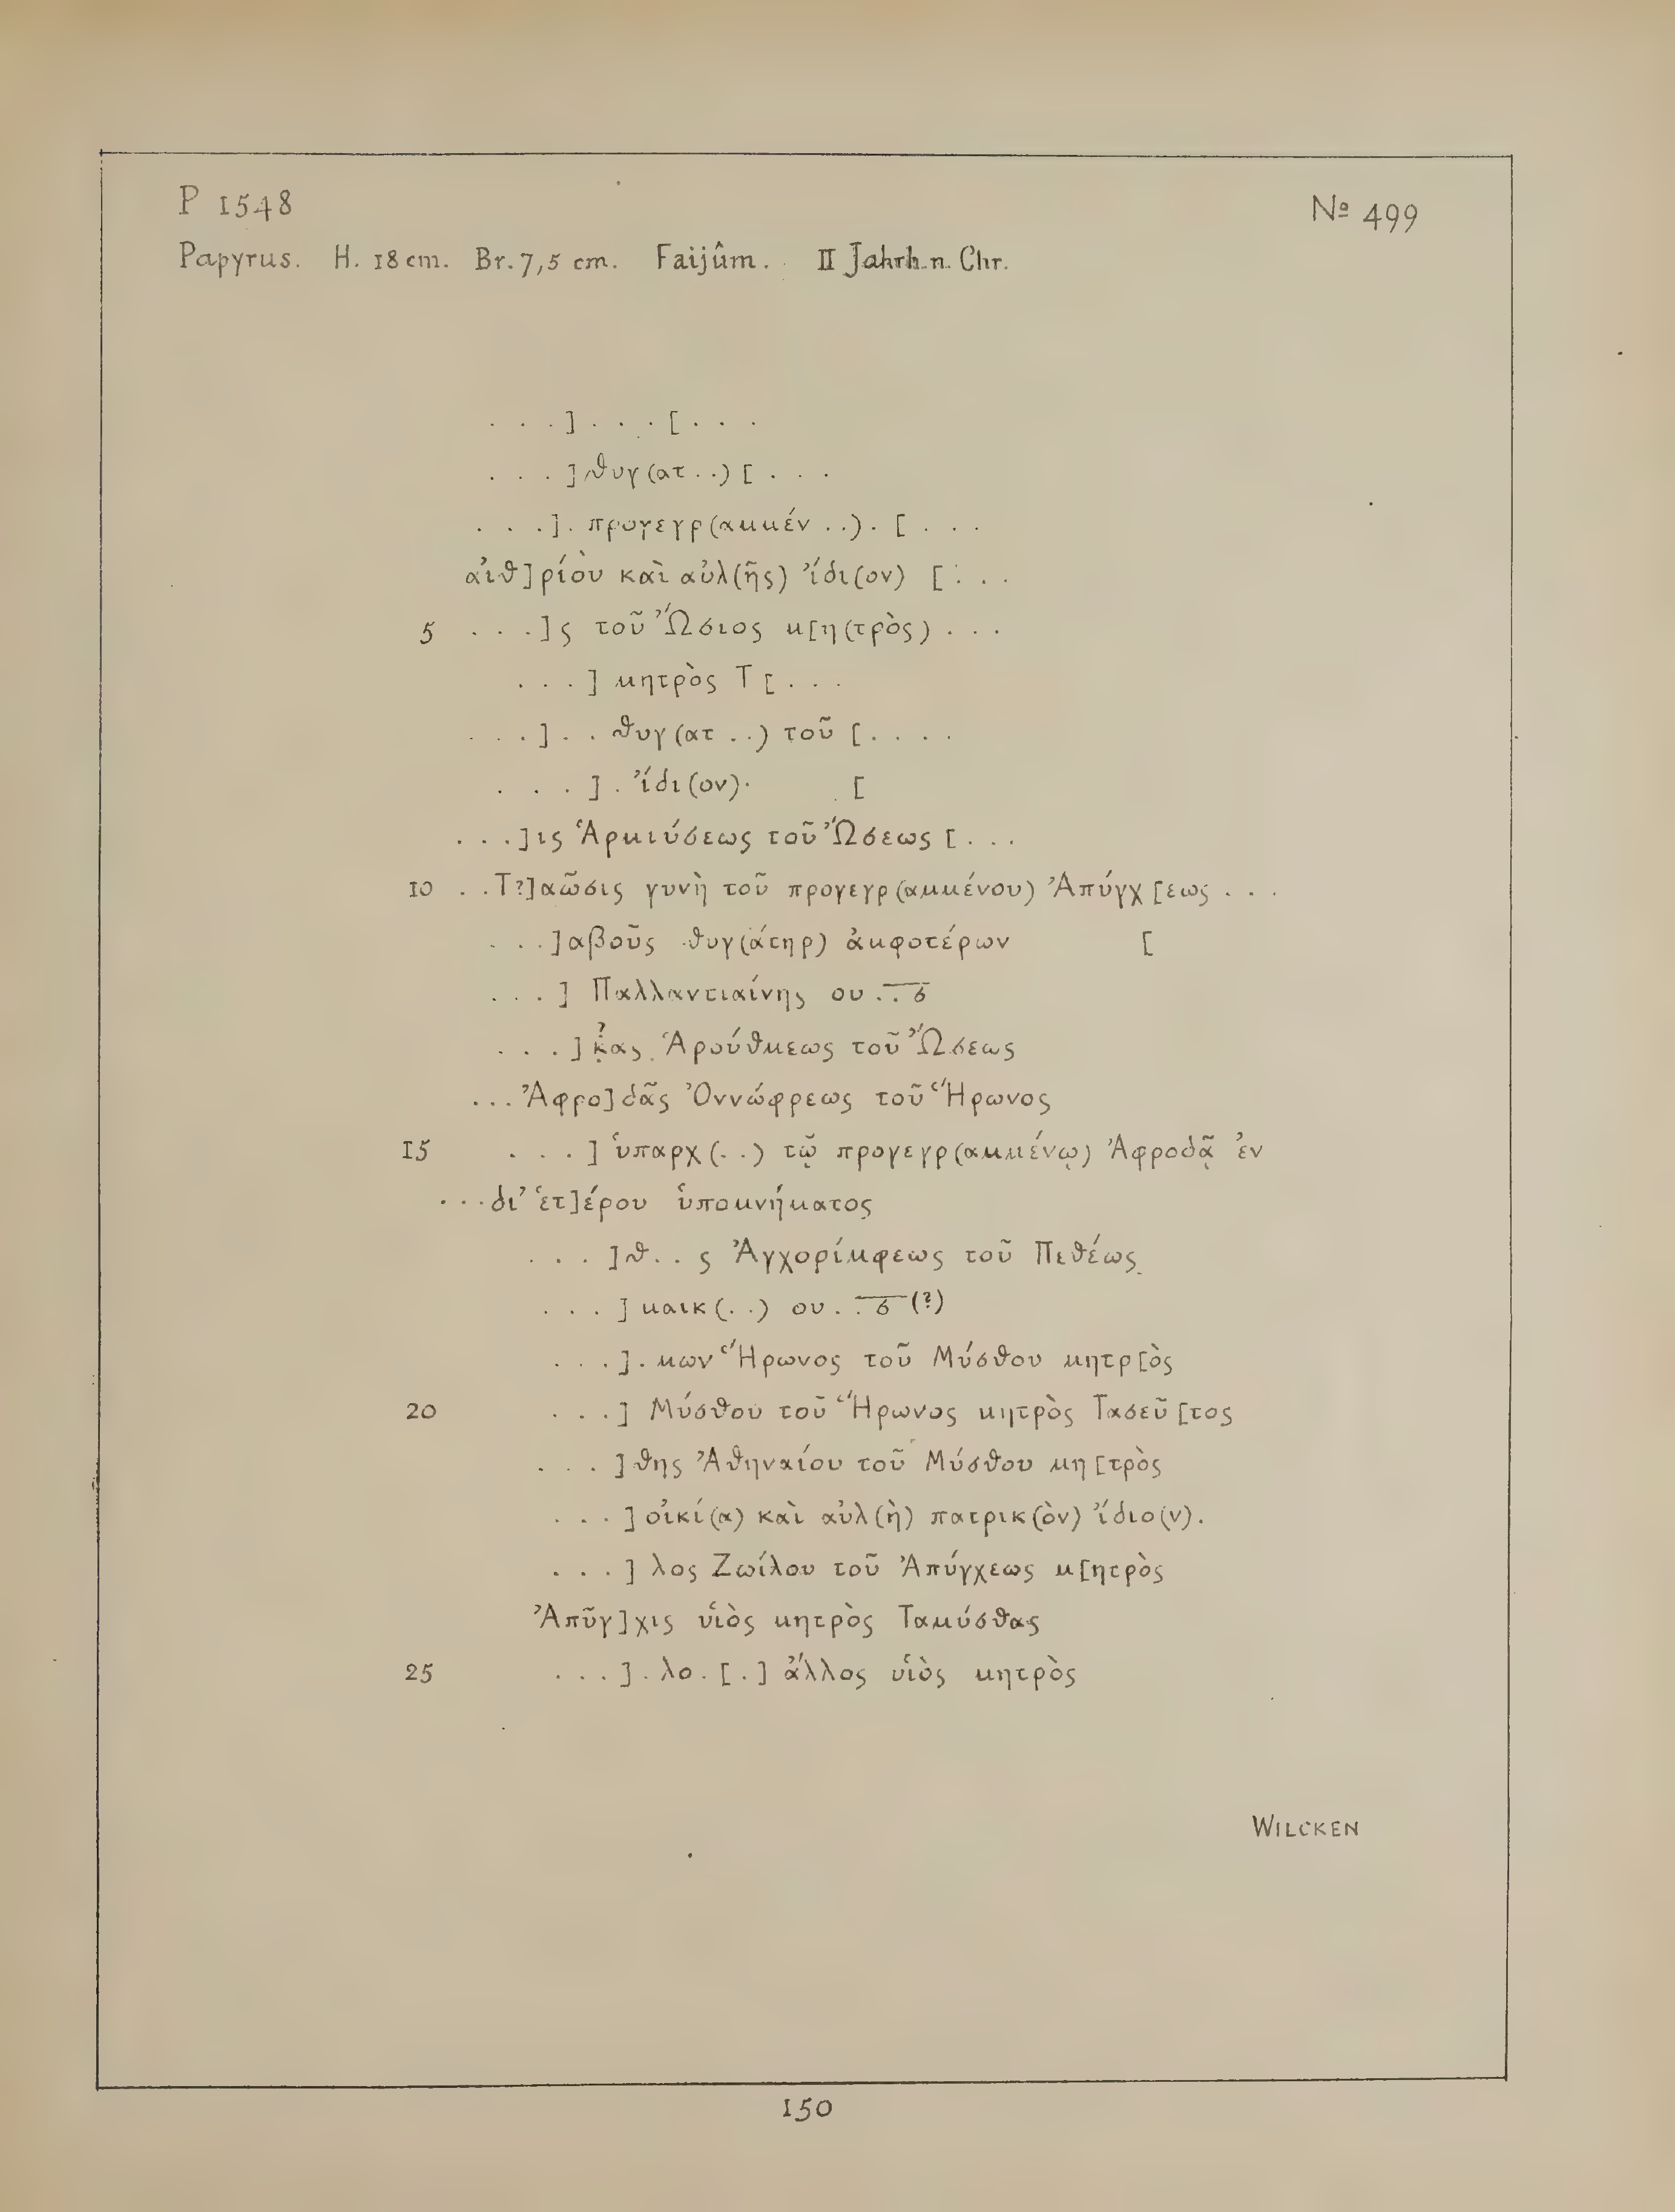 P 1548
Nº 499
Papyrus. H. 18 cm. Br. 7,5 cm. Faijûm. II Jahrh. n. Chr.
. . . ] . . . [ . . .
. . . ] θυγ(ατ . .) [ . . .
. . . ] . προγεγρ(αμμέν . .) . [ . . .
αἰθ]ρίου καὶ αὐλ(ῆς) ἴδι(ον) [ . . .
5 . . . ]ς τοῦ Ὤσιος μ[η(τρὸς) . . .
. . . ] μητρὸς Τ [ . . .
. . . ] . . θυγ(ατ . .) τοῦ [ . . . .
. . . ] . ἴδι(ον)· [
. . . ]ις Ἁρμιύσεως τοῦ Ὤσεως [ . . .
10 . . Τ?]αῶσις γυνὴ τοῦ προγεγρ(αμμένου) Ἀπύγχ[εως . . .
. . . ]αβοῦς θυγ(άτηρ) ἀμφοτέρων [
. . . ] Παλλαντιαίνης ου . . σ̅
. . . ] κας Ἁρούθμεως τοῦ Ὤσεως
. . . Ἀφρο]δᾶς Ὀννώφρεως τοῦ Ἥρωνος
15 . . . ] ὑπαρχ(. .) τῷ προγεγρ(αμμένῳ) Ἀφροδᾷ ἐν
. . . δι’ ἑτ]έρου ὑπομνήματος
. . . ]θ . . ς Ἀγχορίμφεως τοῦ Πεθέως
. . . ] μαικ(. .) ου . . σ̅ (?)
. . . ] . μων Ἥρωνος τοῦ Μύσθου μητρ[ὸς
20 . . . ] Μύσθου τοῦ Ἥρωνος μητρὸς Τασεῦ[τος
. . . ]θης Ἀθηναίου τοῦ Μύσθου μη[τρὸς
. . . ] οἰκί(α) καὶ αὐλ(ὴ) πατρικ(ὸν) ἴδιο(ν).
. . . ] λος Ζωίλου τοῦ Ἀπύγχεως μ[ητρὸς
Ἀπῦγ]χις υἱὸς μητρὸς Ταμύσθας
25 . . . ] . λο . [ . ] ἄλλος υἱὸς μητρὸς
WILCKEN
150